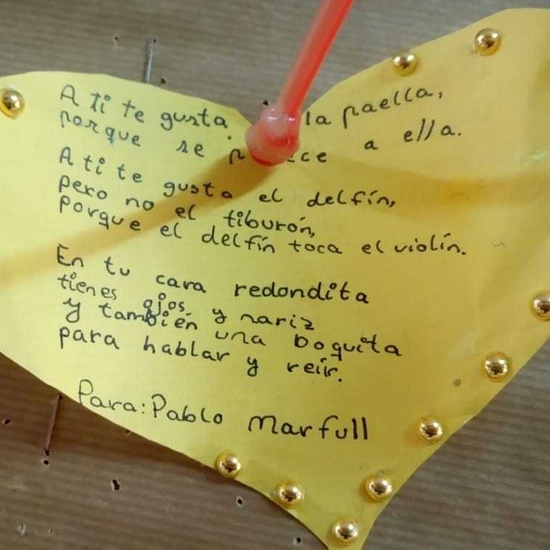 A ti te gusta la paella,
porque se parece a ella.
A ti te gusta el delfín,
pero no el tiburón,
porque el delfín toca el violín.
En tu cara redondita
tienes ojos y nariz
y también una boquita
para hablar y reír.
Para: Pablo Marfull